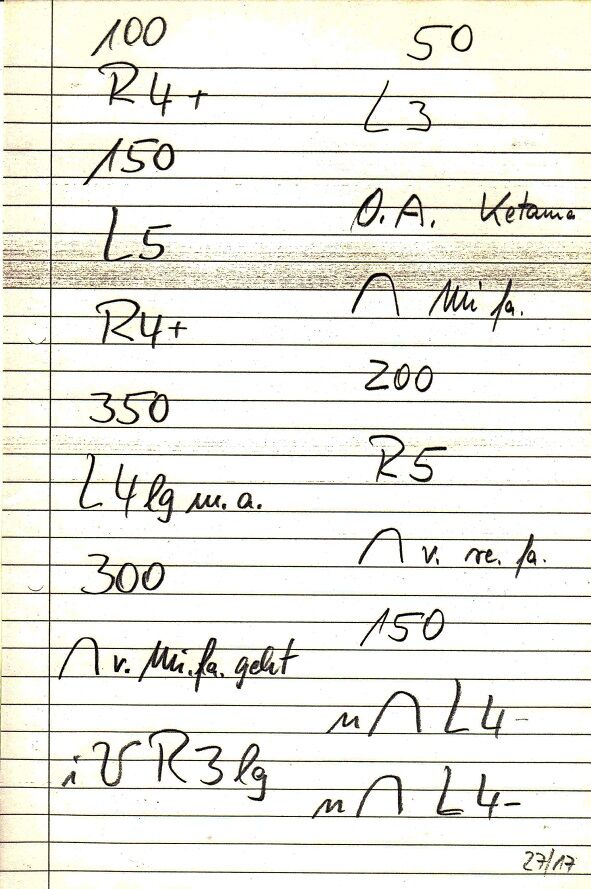 100
R4+
150
L5
R4+
350
L4 lg m. a.
300
∩ v. Mi. fa. geht
i V R3 lg
50
L3
O.A. Ketama
∩ Mi fa.
200
R5
∩ v. re. fa.
150
n ∩ L4-
n ∩ L4-
27/17